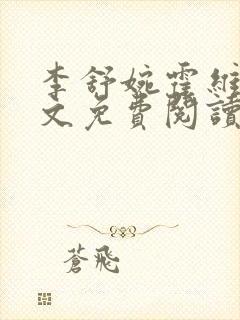 李舒婉霍維
文免費閱讀
蒼飛